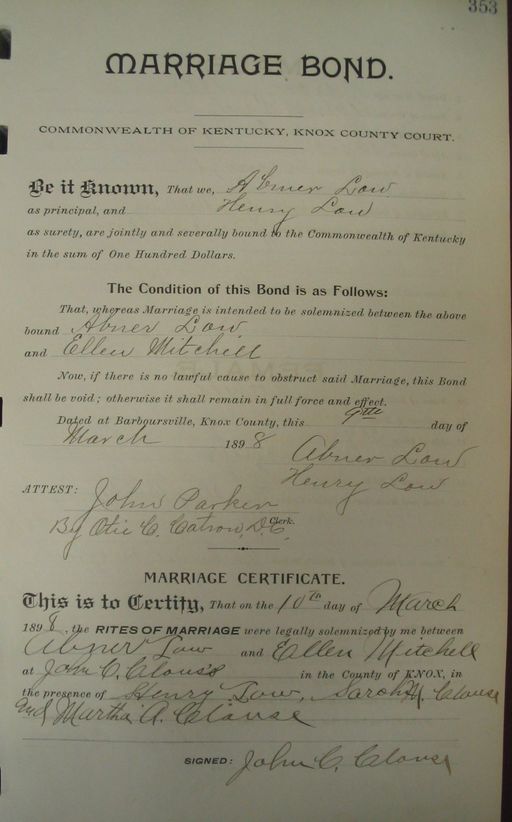 353
MARRIAGE BOND.
COMMONWEALTH OF KENTUCKY, KNOX COUNTY COURT.
Be it Known, That we, Abner Low
as principal, and Henry Low
as surety, are jointly and severally bound to the Commonwealth of Kentucky
in the sum of One Hundred Dollars.
The Condition of this Bond is as Follows:
That, whereas Marriage is intended to be solemnized between the above
bound Abner Low
and Ellen Mitchell
Now, if there is no lawful cause to obstruct said Marriage, this Bond
shall be void; otherwise it shall remain in full force and effect.
Dated at Barboursville, Knox County, this 9th day of
March 1898
Abner Low
Henry Low
ATTEST:
John Parker
Clerk.
By Otie C. Catron, D.C.
MARRIAGE CERTIFICATE.
This is to Certify, That on the 10th day of March
1898, the RITES OF MARRIAGE were legally solemnized by me between
Abner Low and Ellen Mitchell
at John C. Clouse in the County of KNOX, in
the presence of Henry Low, Sarah M. Clouse
and Martha A. Clouse
SIGNED: John C. Clouse